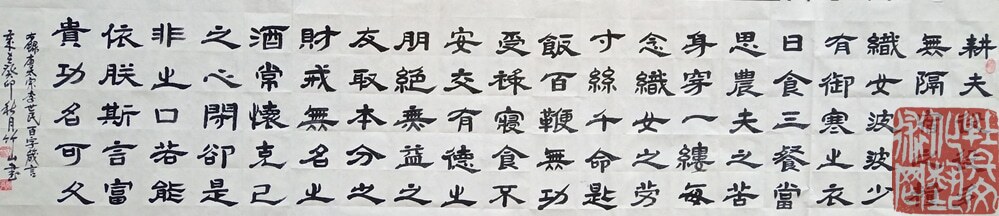 耕夫
無隔
織女波波少
有御寒之衣
日食三餐當
思農夫之苦
身穿一縷每
念織女之勞
寸絲千命匙
飯百鞭無功
受祿寢食不
安交有德之
朋絕無益之
友取本分之
財戒無名之
酒常懷克己
之心閉卻是
非之口若能
依朕斯言富
貴功名可久
錄唐太宗李世民百字箴言
癸卯秋月竹山書